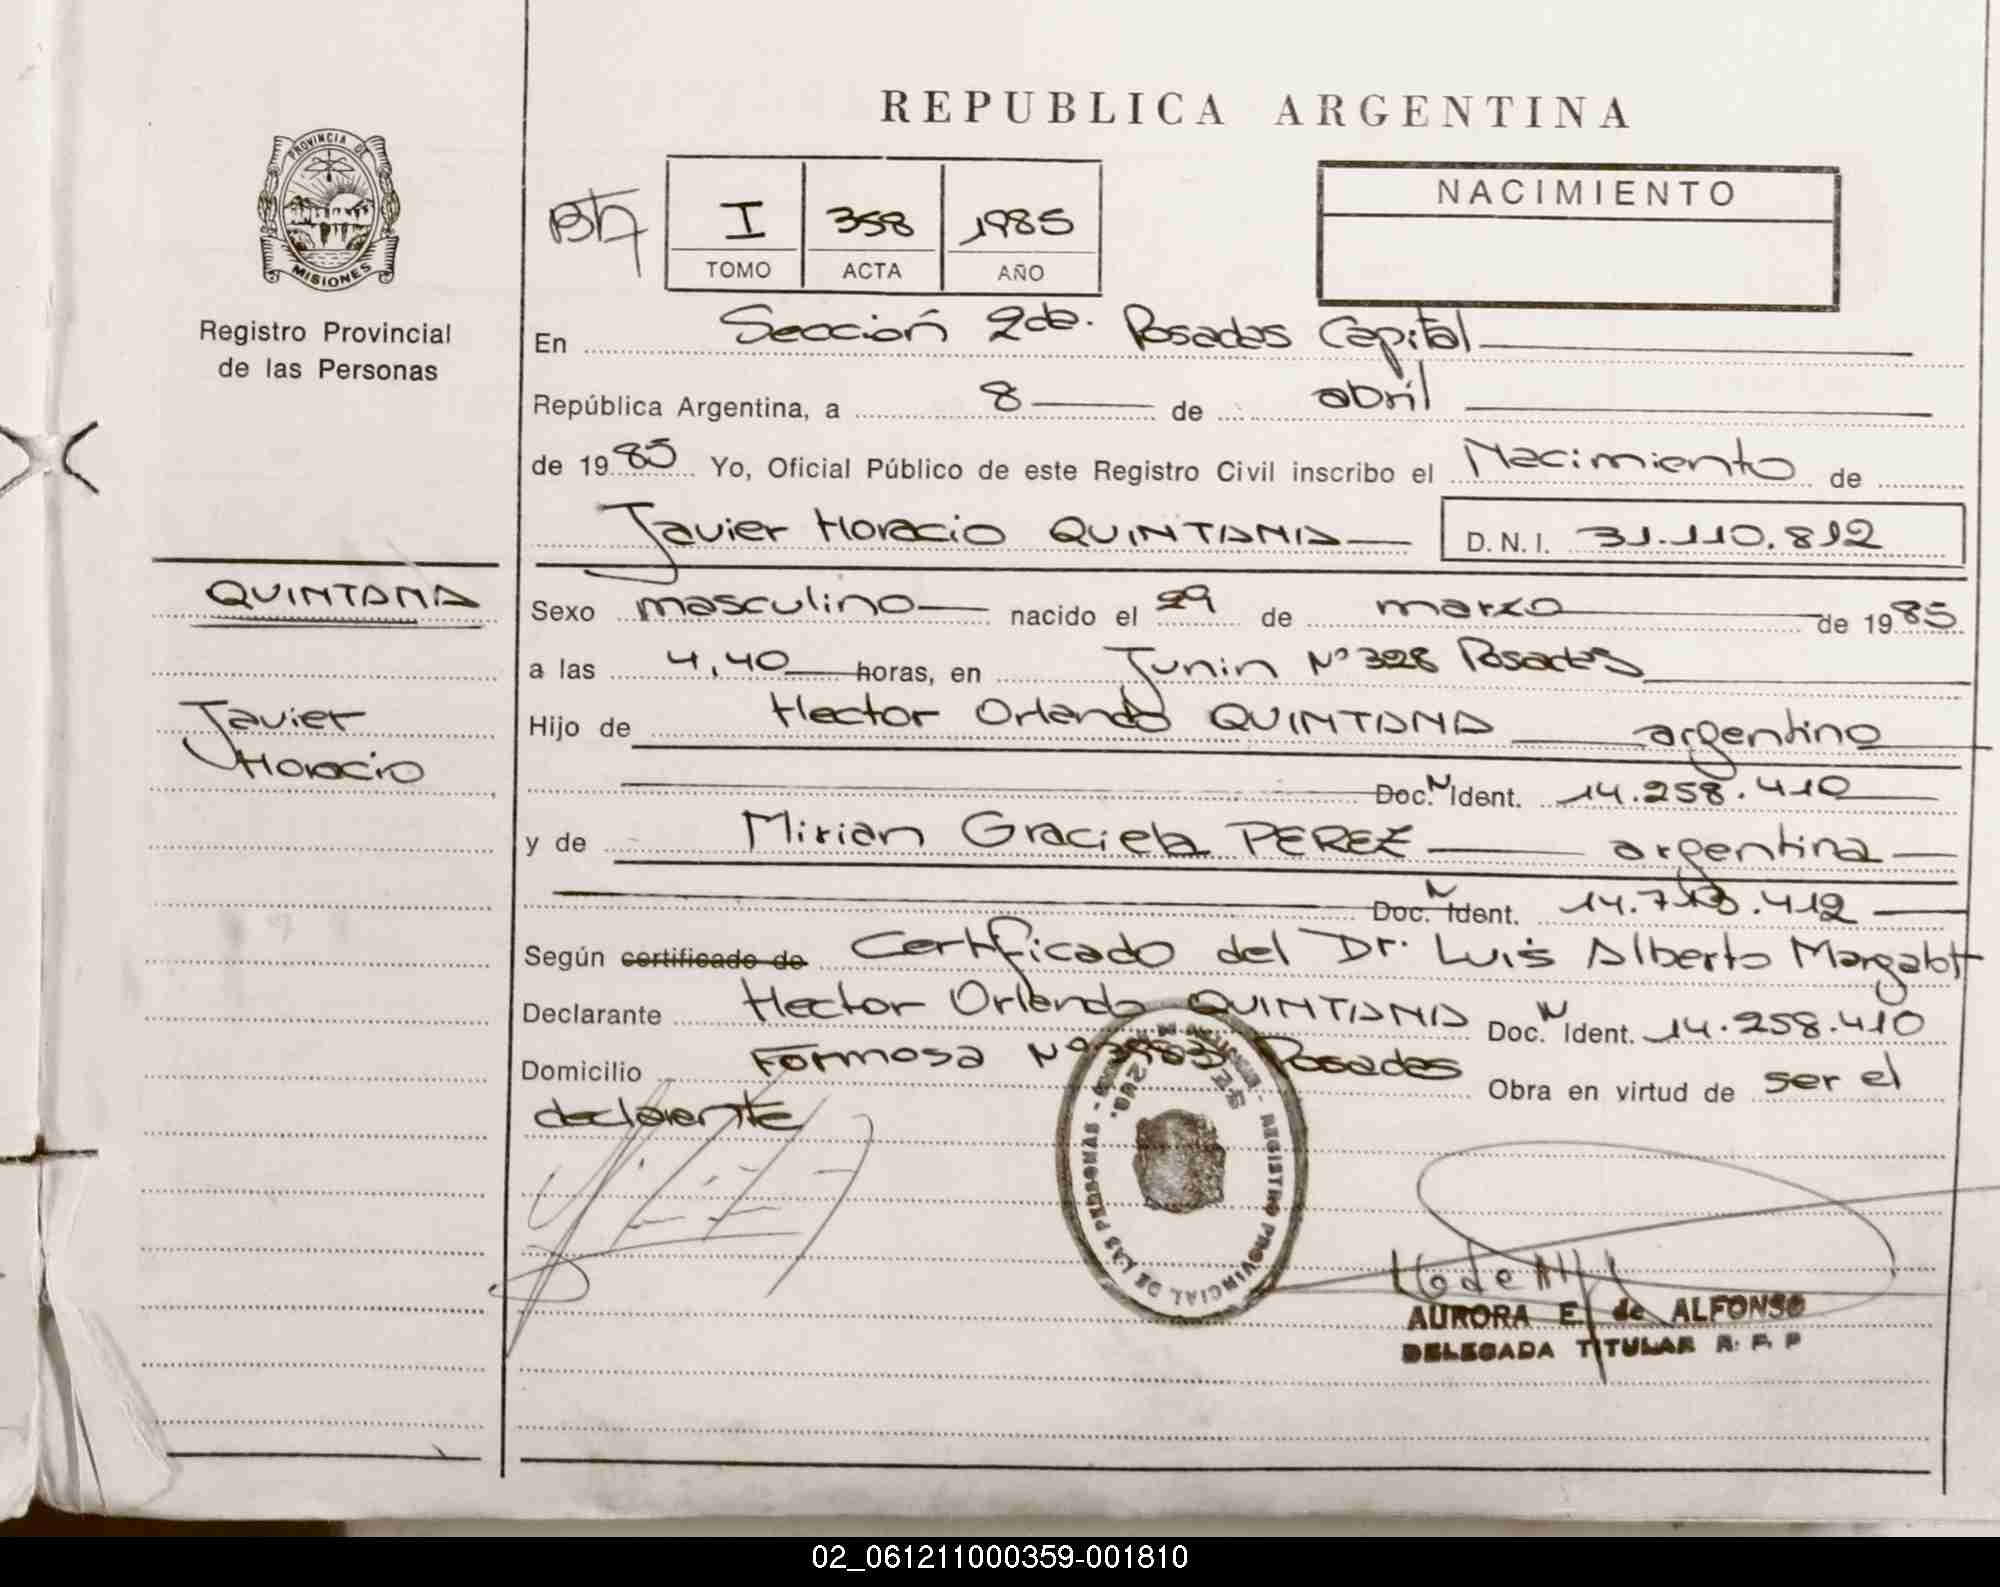 REPUBLICA ARGENTINA
PROVINCIA DE
MISIONES
Registro Provincial
de las Personas
I 358 1985
TOMO ACTA AÑO
NACIMIENTO
En Sección 2da. Posadas Capital
República Argentina, a 8 de abril
de 1985 Yo, Oficial Público de este Registro Civil inscribo el Nacimiento de
Javier Horacio QUINTANA D.N.I. 31.110.812
QUINTANA
Javier
Horacio
Sexo masculino nacido el 29 de marzo de 1985
a las 4,40 horas, en Junin Nº 328 Posadas
Hijo de Hector Orlando QUINTANA argentino
Doc. N Ident. 14.258.410
y de Mirian Graciela PEREZ argentina
Doc. N Ident. 14.713.412
Según certificado de Certificado del Dr. Luis Alberto
Declarante Hector Orlando QUINTANA Doc. N Ident. 14.258.410
Domicilio Formosa Nº Posadas Obra en virtud de ser el
declarante
REGISTRO PROVINCIAL DE LAS PERSONAS
AURORA E. de ALFONSO
DELEGADA TITULAR R. P. P
02_061211000359-001810